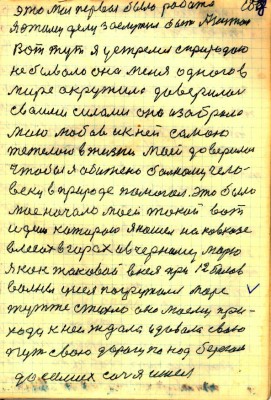 это моя первая была работа
я этому делу заслужил быть
Вот тут я устремился природою
не бывало она меня одного в
мире окружило доверилася
своими силами она изобрала
мою любовь к ней самою
тяжелою в жизни моей доверила
чтобы я обижено больному чело-
веку в природе помогал. Это было
мое начало моей такой вот
идеи которую я нашел на кавказе
в лесах в горах и в черному морю
я как таковой в нея при 12 балов
волны у нея погружался море
тут же стихло оно моему при-
ходу к ней ждала и давала свою
путь свою дорогу по над берегом
до самих сочи я шел